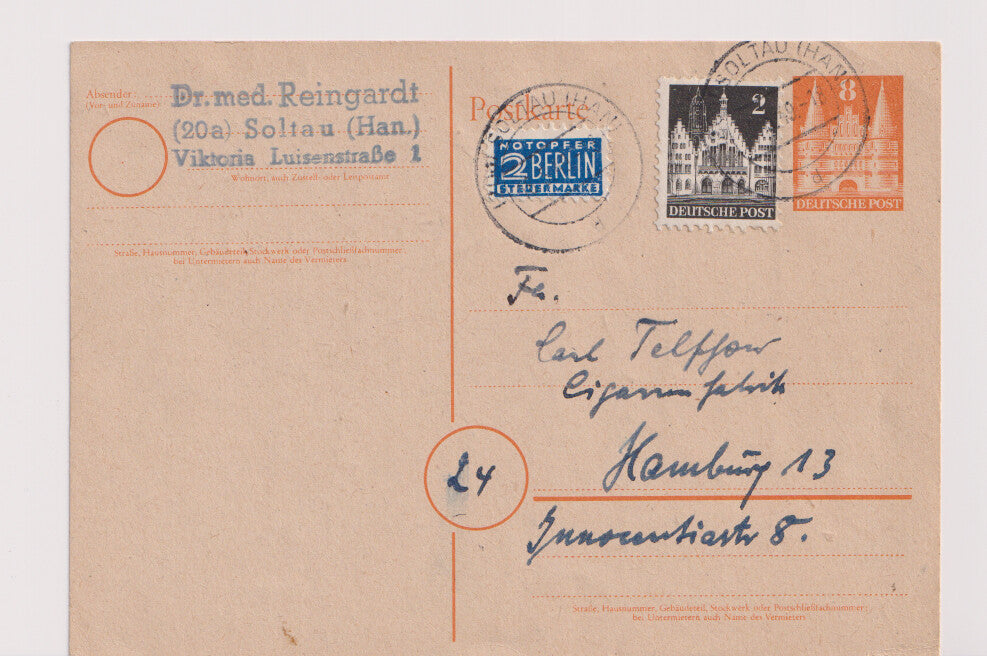 Absender:
(Vor- und Zuname)
Dr. med. Reingardt
(20a) Soltau (Han.)
Viktoria Luisenstraße 1
Wohnort, auch Zustell- oder Leitpostamt
Straße, Hausnummer, Gebäudeteil, Stockwerk oder Postschließfachnummer;
bei Untermietern auch Name des Vermieters
Postkarte
SOLTAU (HAN
NOTOPFER
2 BERLIN
STEUERMARKE
2
DEUTSCHE POST
SOLTAU (HAN
8
DEUTSCHE POST
Fa.
Carl
Cigarrenfabrik
Hamburg 13
24
Innocentiastr 8.
Straße, Hausnummer, Gebäudeteil, Stockwerk oder Postschließfachnummer;
bei Untermietern auch Name des Vermieters